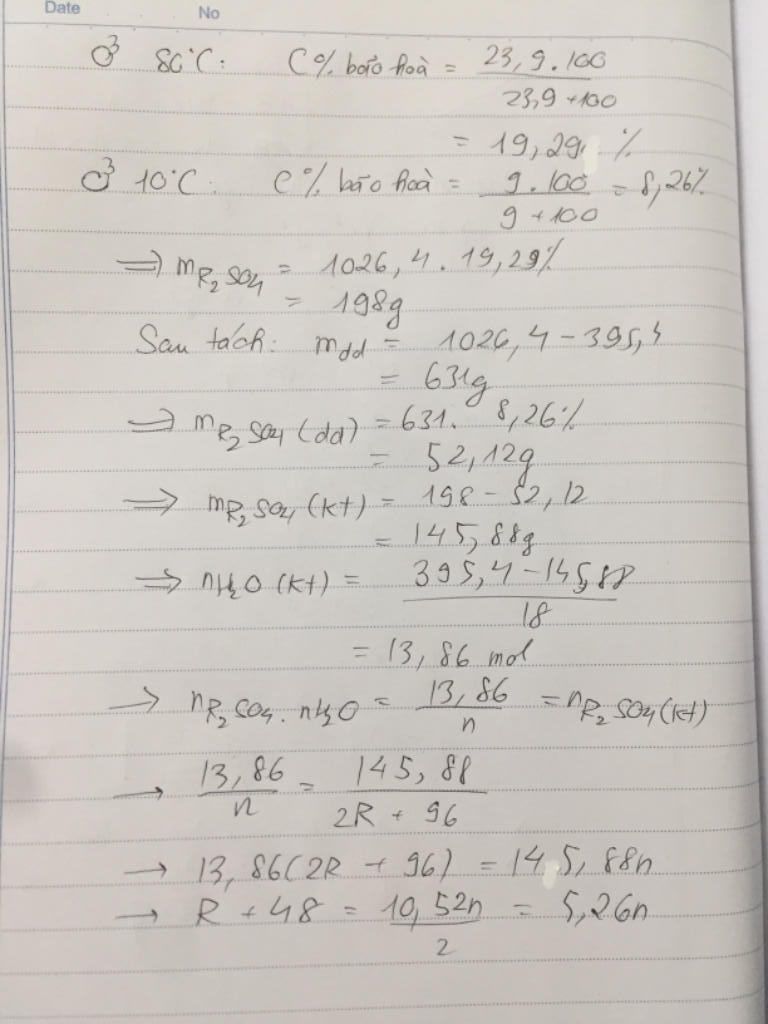 Date No
Ở 80°C: C% bão hoà = 23,9.100 / 23,9+100
= 19,29 %
Ở 10°C: C% bão hoà = 9.100 / 9+100 = 8,26%
=> mR₂SO₄ = 1026,4 . 19,29%
= 198g
Sau tách: mdd = 1026,4 - 395,4
= 631g
=> mR₂SO₄ (dd) = 631. 8,26%
= 52,12g
=> mR₂SO₄ (kt) = 198 - 52,12
= 145,88g
=> nH₂O (kt) = 395,4 - 145,88 / 18
= 13,86 mol
→ nR₂SO₄.nH₂O = 13,86 / n = nR₂SO₄(kt)
→ 13,86 / n = 145,88 / 2R + 96
→ 13,86(2R + 96) = 145,88n
→ R + 48 = 10,52n / 2 = 5,26n